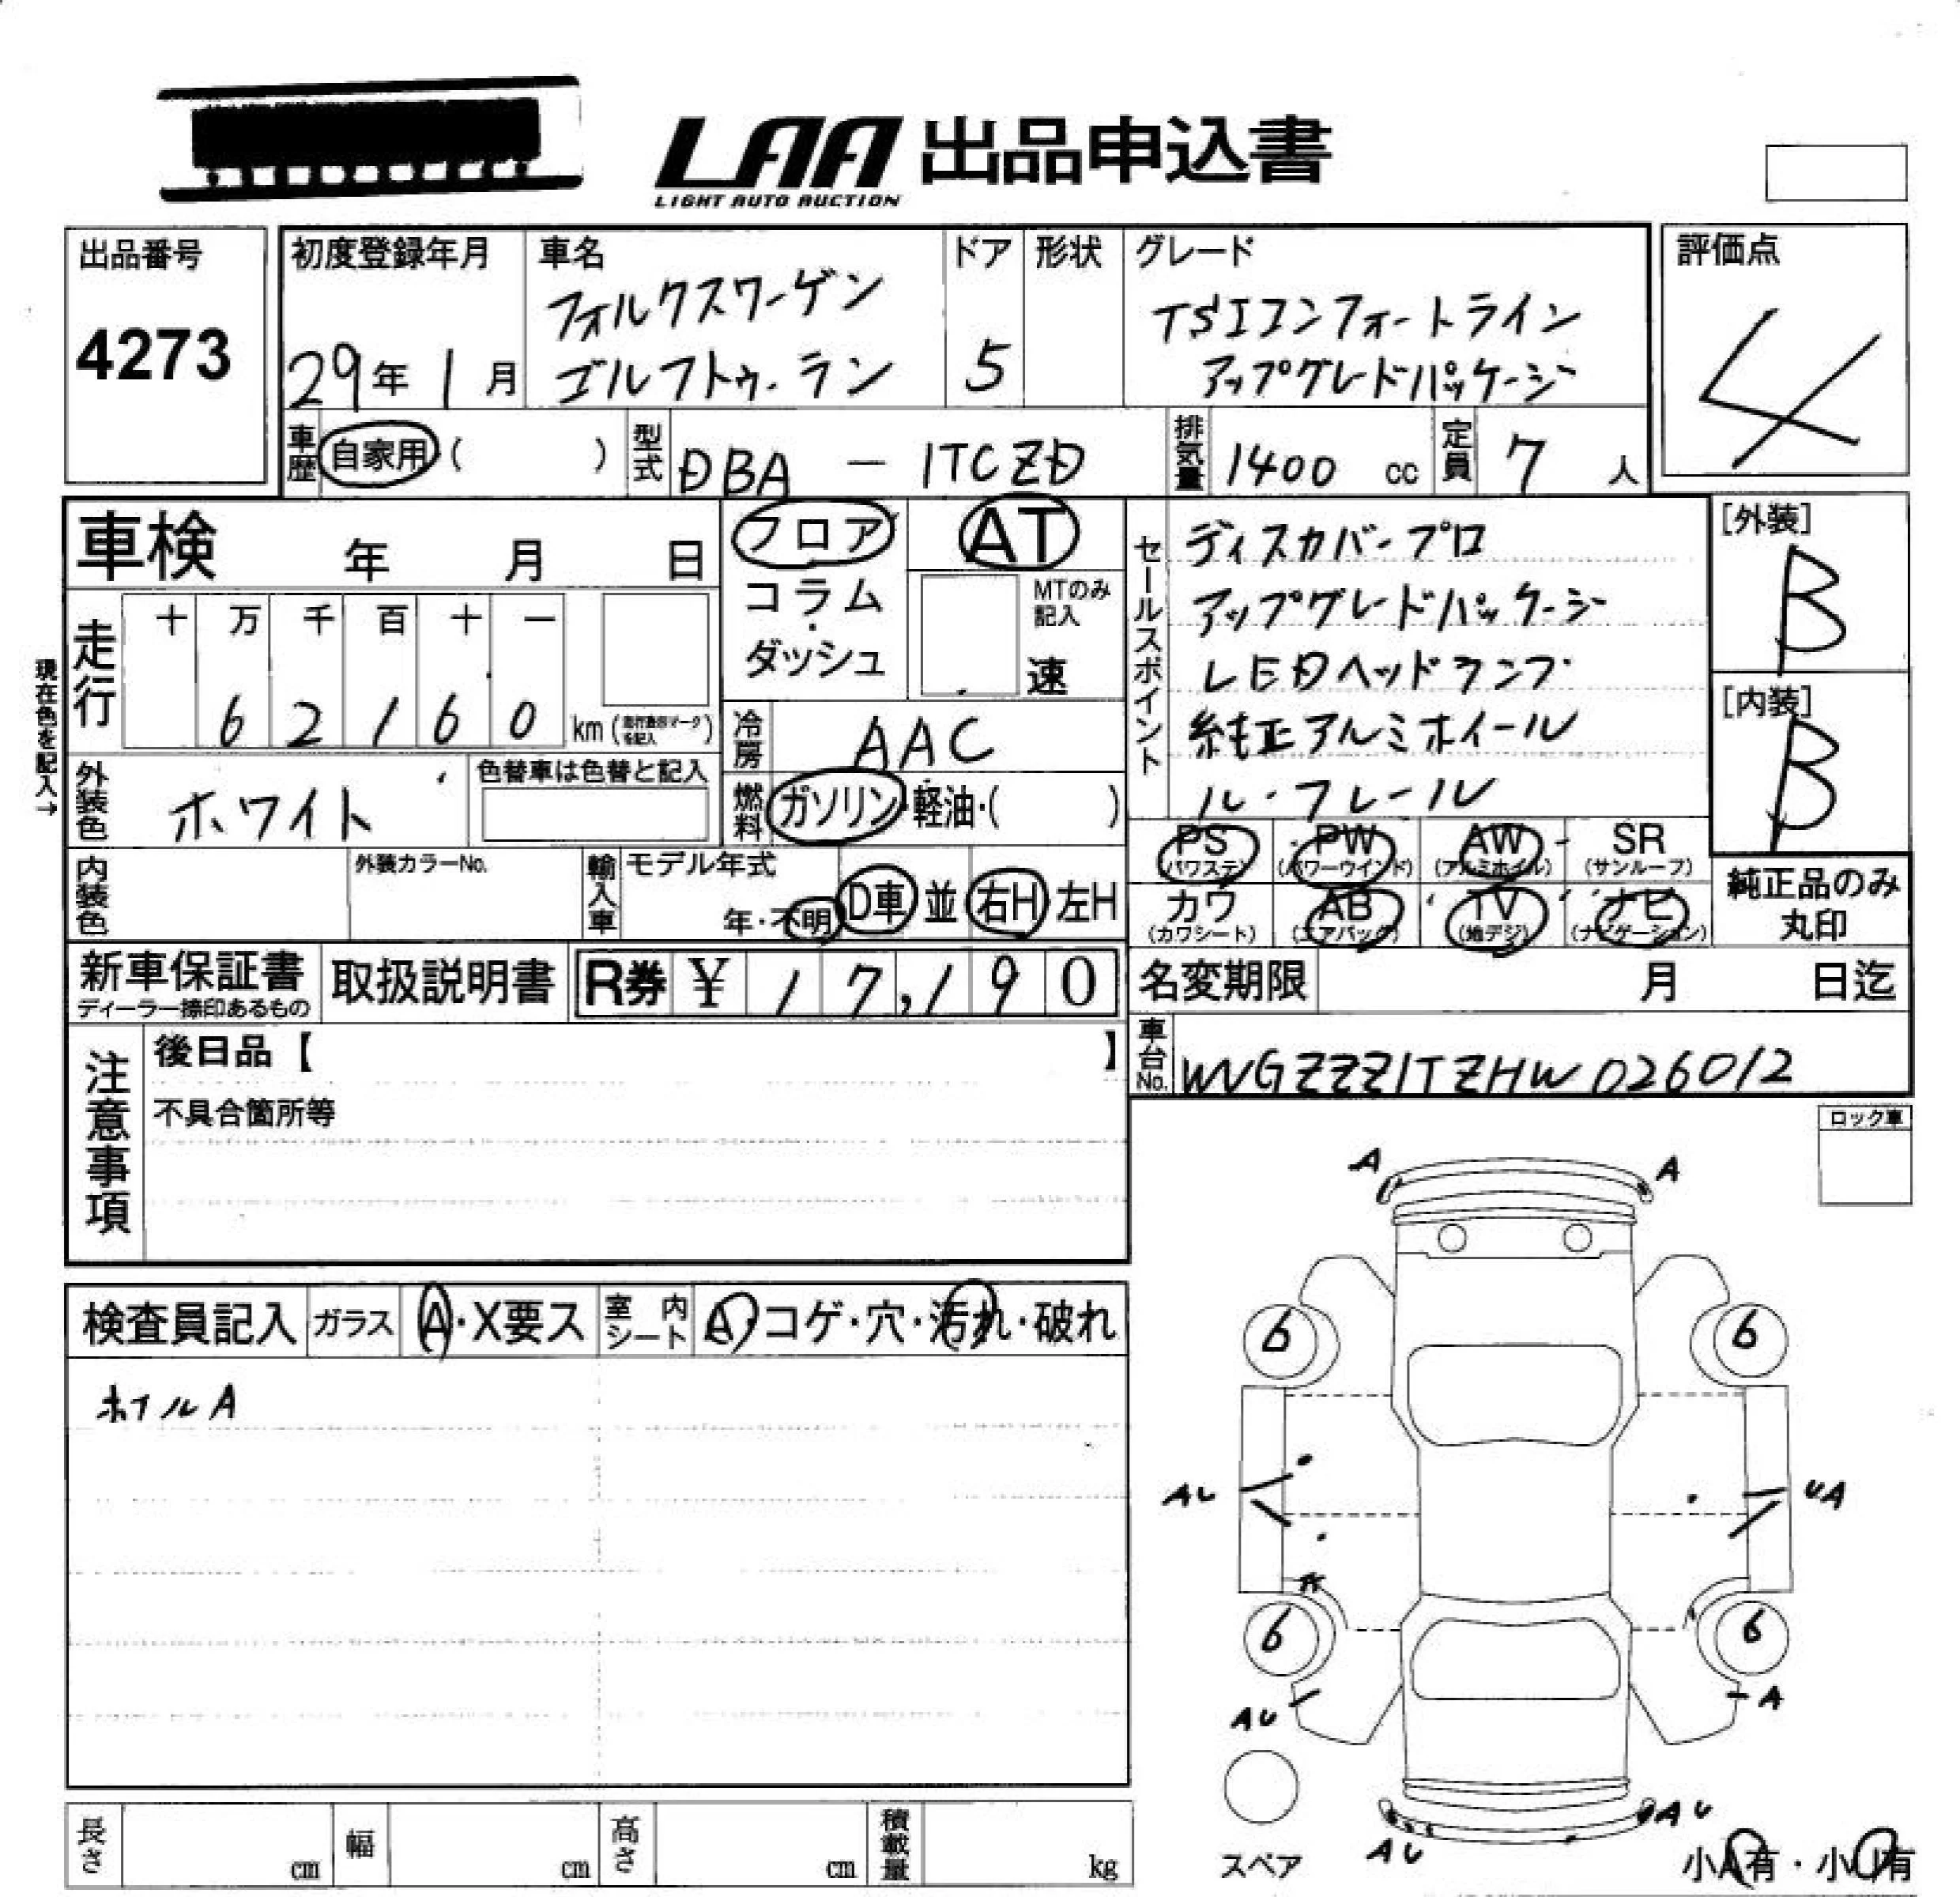 LAA 出品申込書
LIGHT AUTO AUCTION
出品番号
4273
初度登録年月
29年 1月
車名
フォルクスワーゲン
ゴルフトゥーラン
ドア
5
形状
グレード
TSIコンフォートライン
アップグレードパッケージ
評価点
4
車歴 自家用 ( )
型式 DBA - 1TCZD
排気量 1400 cc
定員 7 人
車検 年 月 日
フロア
コラム
・
ダッシュ
AT
MTのみ
記入
速
セールスポイント
ディスカバープロ
アップグレードパッケージ
LEDヘッドランプ
純正アルミホイール
ルーフレール
[外装]
B
[内装]
B
現在色を記入→
走行
十 万 千 百 十 一
6 2 1 6 0 km
冷房 AAC
燃料 ガソリン・軽油・( )
外装色 ホワイト
色替車は色替と記入
PS PW AW SR
(パワステ) (パワーウインド) (アルミホイル) (サンルーフ)
カワ AB TV ナビ
(カワシート) (エアバック) (地デジ) (ナビゲーション)
純正品のみ
丸印
内装色
外装カラーNo.
輸入車
モデル年式
年・不明
D車 並 右H・左H
新車保証書
ディーラー捺印あるもの
取扱説明書
R券 ¥ 17,190
名変期限 月 日迄
車台No. WVGZZZ1TZHW026012
注意事項
後日品【 】
不具合箇所等
ロック車
検査員記入 ガラス A・X要ス 室内シート A・コゲ・穴・汚れ・破れ
ホイルA
A A
6 6
AU UA
6 6
AU A
AU AU
スペア
小A有・小U有
長さ cm 幅 cm 高さ cm 積載量 kg